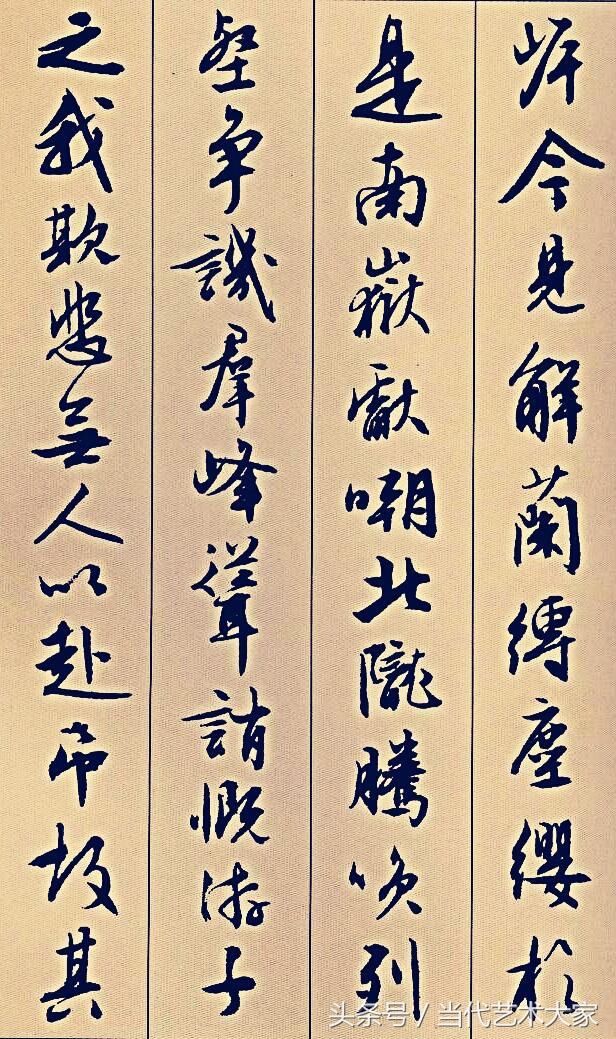 岸今見解蘭縛塵纓於
是南嶽獻嘲北隴騰咲列
壑争譏羣峰聳誚慨游子
之我欺悲無人以赴吊故其
头条号 / 当代艺术大家